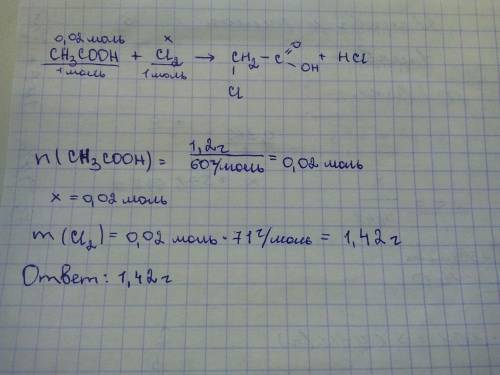 0,02 моль x
CH₃COOH + Cl₂ → CH₂ - C =O + HCl
1 моль 1 моль | \ OH
Cl
n (CH₃COOH) = 1,2г / 60г/моль = 0,02 моль
x = 0,02 моль
m (Cl₂) = 0,02 моль · 71г/моль = 1,42г
Ответ: 1,42г